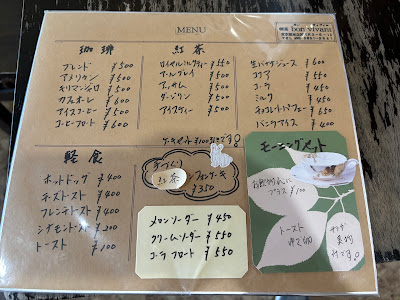 MENU
bon vivant
珈琲
ブレンド ¥500
アメリケン ¥500
キリマンジャロ ¥500
カフェオーレ ¥600
アイスコーヒー ¥500
コーヒーフロート ¥600
紅茶
ロイヤルミルクティー ¥550
アールグレイ ¥500
アッサム ¥500
ダージリン ¥500
アイスティー ¥500
生バナナジュース ¥600
ココア ¥550
コーラ ¥450
ミルク ¥450
チョコレートパフェー ¥650
バニラアイス ¥400
ケーキセット ¥100引きです
軽食
ホットドッグ ¥400
チーズトースト ¥400
フレンチトースト ¥400
シナモントースト ¥200
トースト ¥100
手づくり
紅茶
シフォンケーキ
¥350
メロンソーダー ¥450
クリームソーダー ¥550
コーラフロート ¥550
モーニングセット
お飲物代に
プラス ¥100
トースト
ゆで卵
サラダ
果物
付です